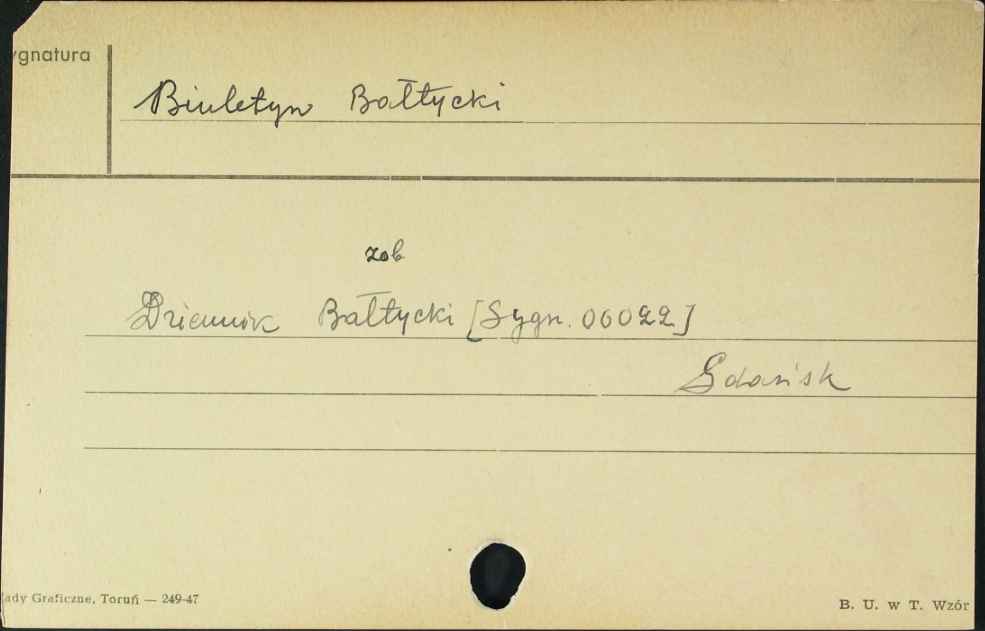 ygnatura
Biuletyn Bałtycki
zob
Dziennik Bałtycki [Sygn. 06022]
Gdańsk
ady Graficzne, Toruń — 249-47
B. U. w T. Wzór